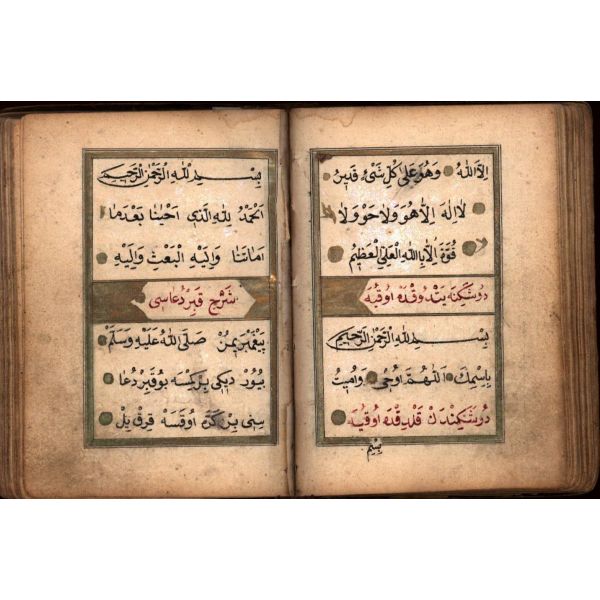 اِلاَّ اللهُ وَهُوَ عَلٰى كُلِّ شَیْءٍ قَدِيرٌ
لاَ اِلٰهَ اِلاَّ هُوَ وَلاَ حَوْلَ وَلاَ
قُوَّةَ اِلاَّ بِاللهِ الْعَلِىِّ الْعَظِيمِ
دوشكنه يتدوقده اوقيه
بِسْمِ اللهِ الرَّحْمٰنِ الرَّحِيمِ
بِاسْمِكَ اَللّٰهُمَّ اَحْيٰى وَاَمُوتُ
دوشكندن قلدقده اوقيه
بِسْمِ
بِسْمِ اللهِ الرَّحْمٰنِ الرَّحِيمِ
اَلْحَمْدُ لِلّٰهِ الَّذِى اَحْيَانَا بَعْدَمَا
اَمَاتَنَا وَاِلَيْهِ الْبَعْثُ وَاِلَيْهِ
شرح قبر دعاسى
پيغمبريمز صَلَّى اللهُ عَلَيْهِ وَسَلَّمْ
بيوردیكى بركسه بو قبر دعا
سنى بركره اوقسه قرق ييل